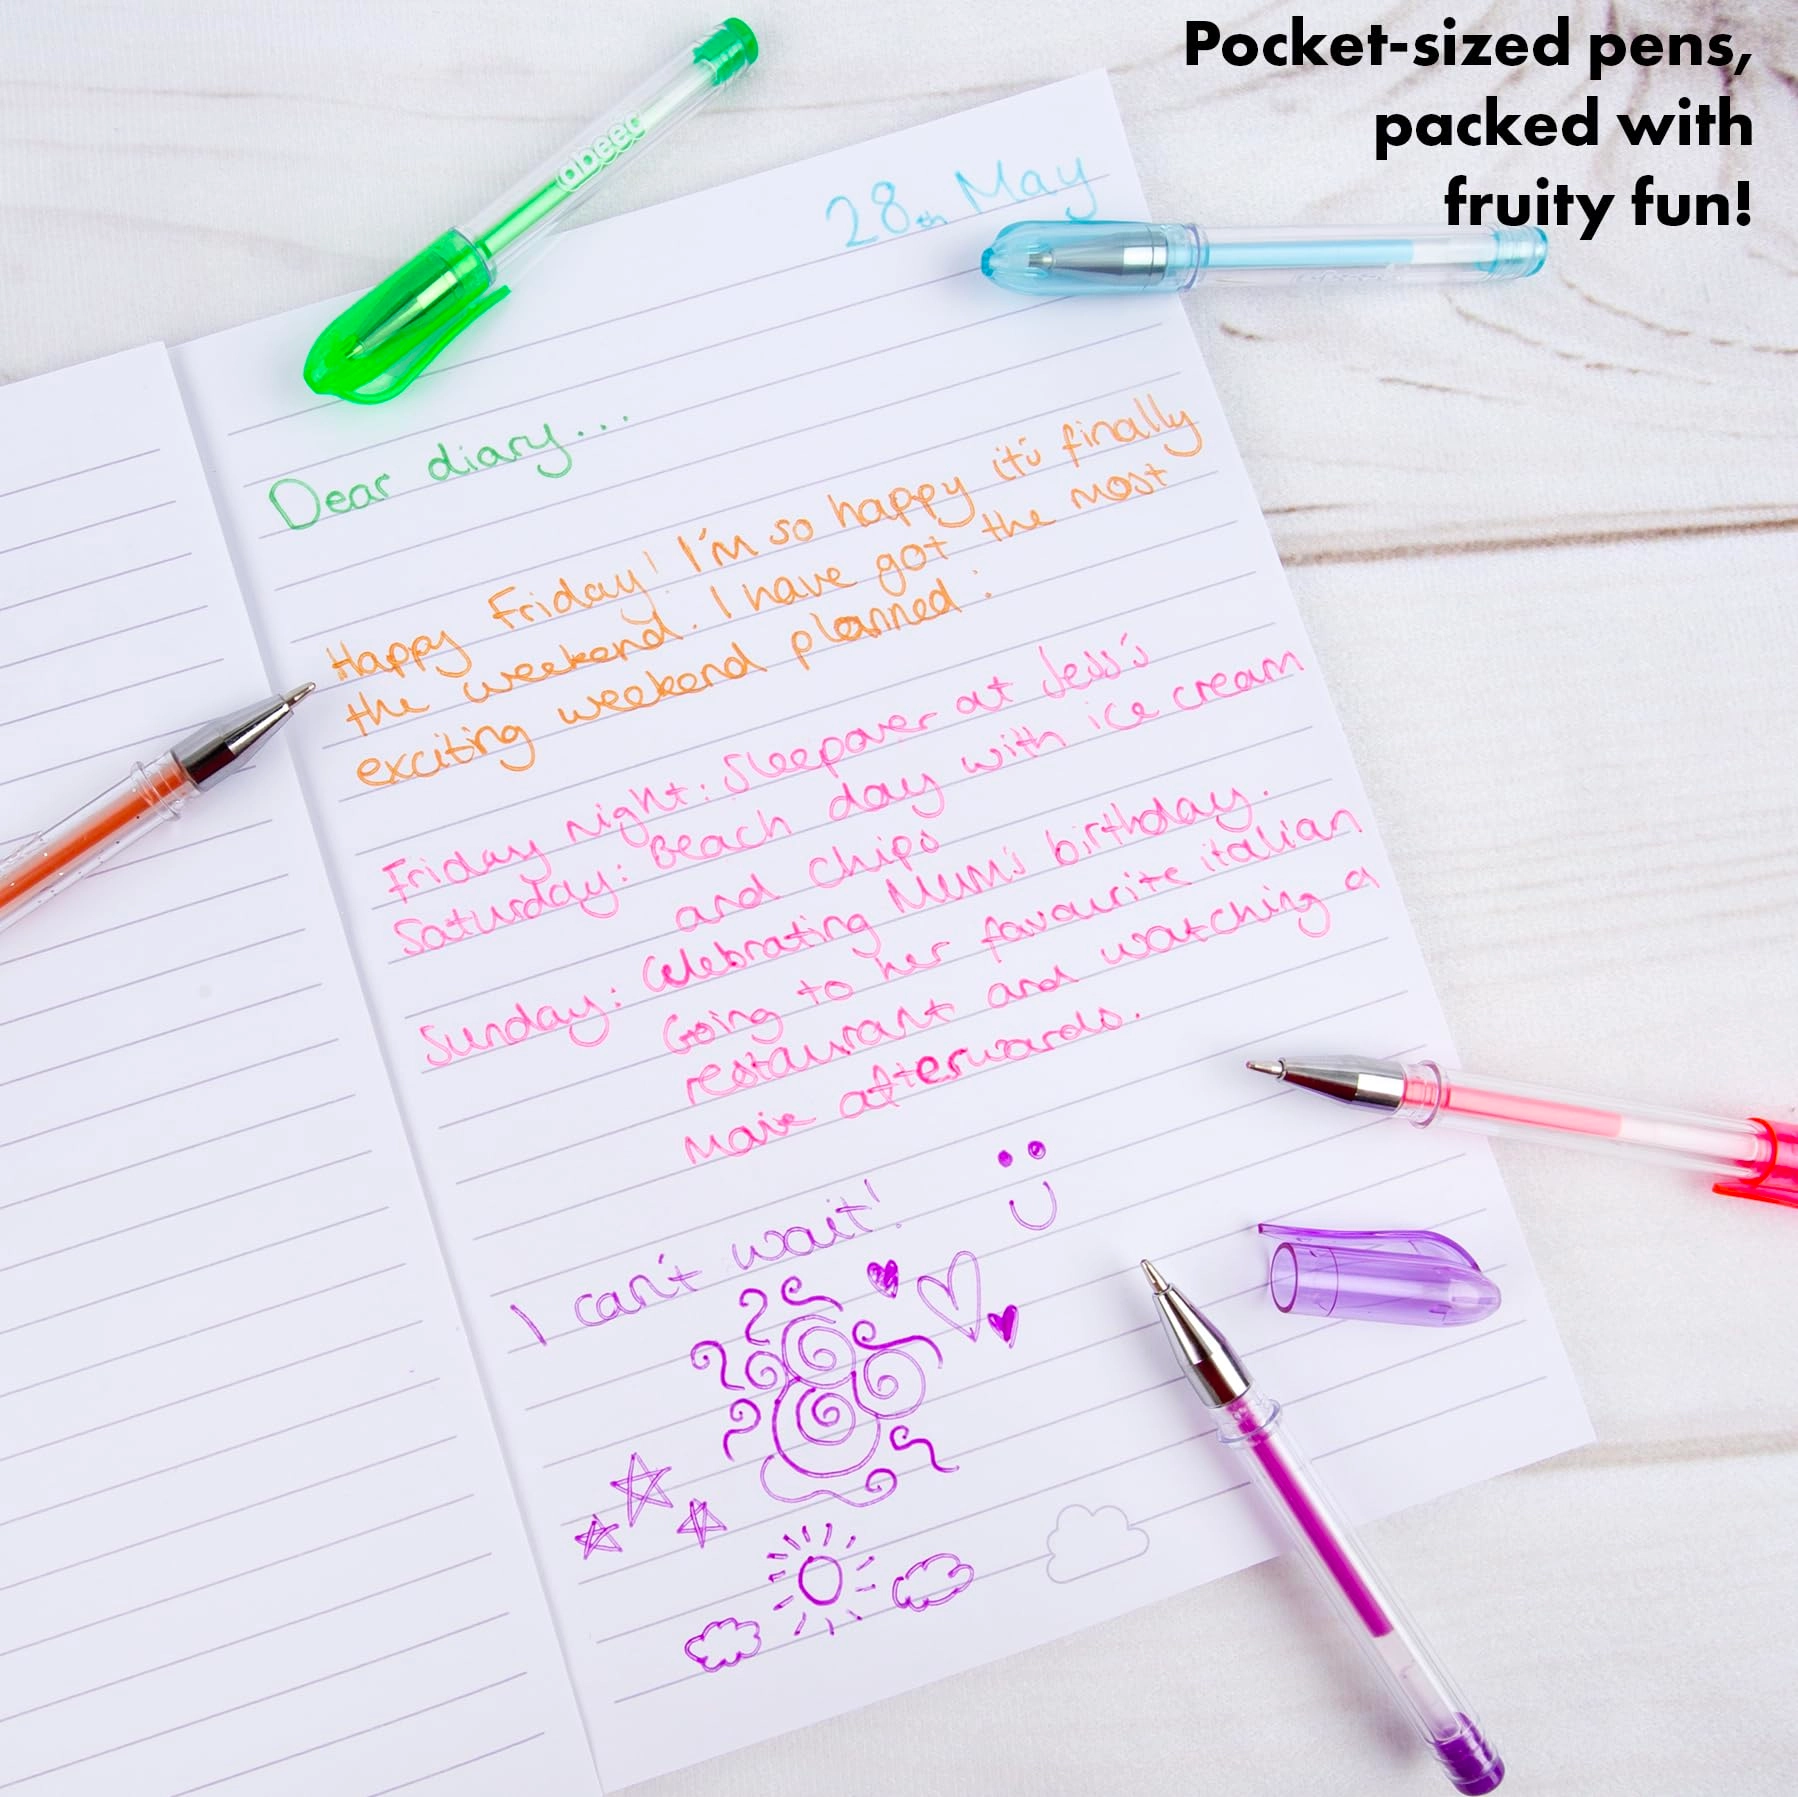 Pocket-sized pens,
packed with
fruity fun!
abeec
28th May
Dear diary...
Happy Friday! I'm so happy it's finally
the weekend. I have got the most
exciting weekend planned:
Friday night: Sleepover at Jess's
Saturday: Beach day with ice cream
and chips
Sunday: Celebrating Mum's birthday.
Going to her favourite italian
restaurant and watching a
Movie afterwards.
I can't wait!